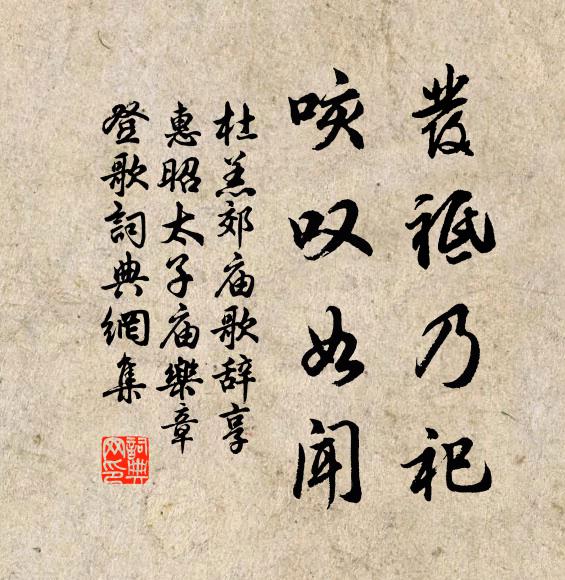 發祗乃祀
咳叹如闻
杜羔郊庙歌辞享
惠昭太子庙樂章
登歌詞典網集
詞典网印